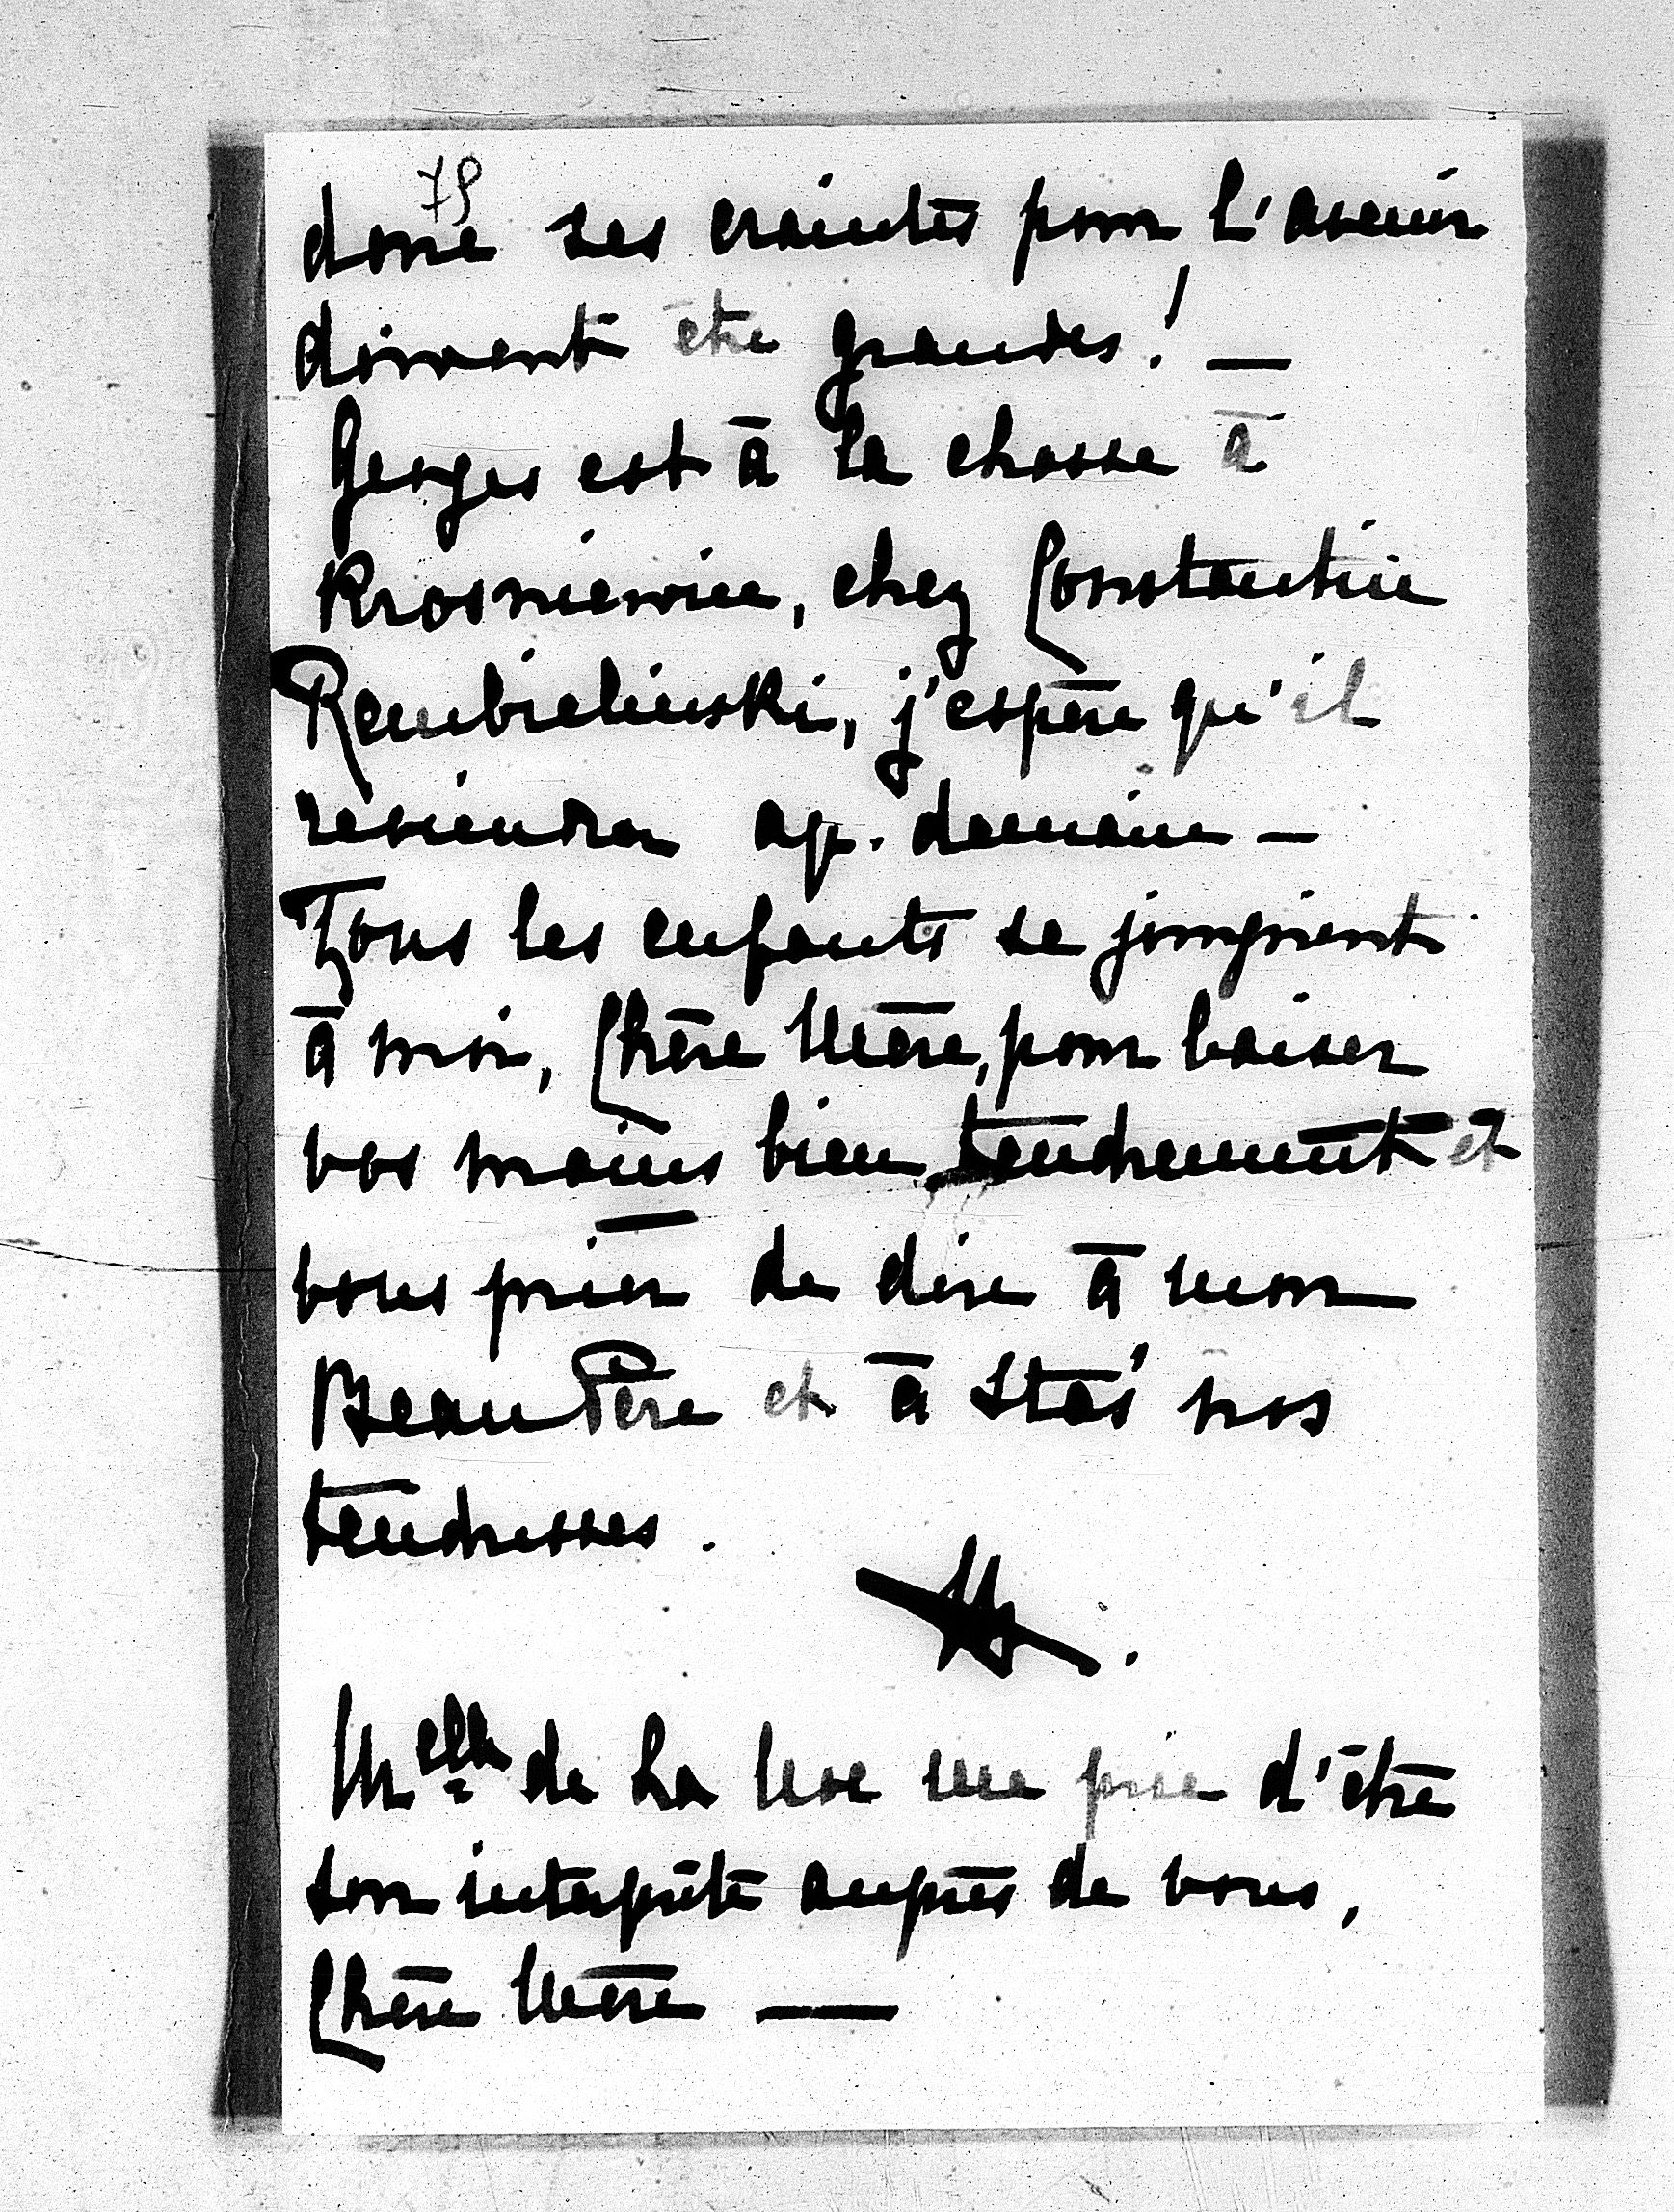 79
donc ses craintes pour l'avenir
doivent être grandes! —
Georges est à la chasse à
Krosniewice, chez Constantin
Rembielinski, j'espère qu'il
reviendra ap. demain —
Tous les enfants se joignent
à moi, Chère Mère, pour baiser
vos mains bien tendrement et
vous prier de dire à mon
Beau Père et à Staś nos
tendresses.
Melle de La Noe me prie d'être
son interprète auprès de vous,
Chère Mère —